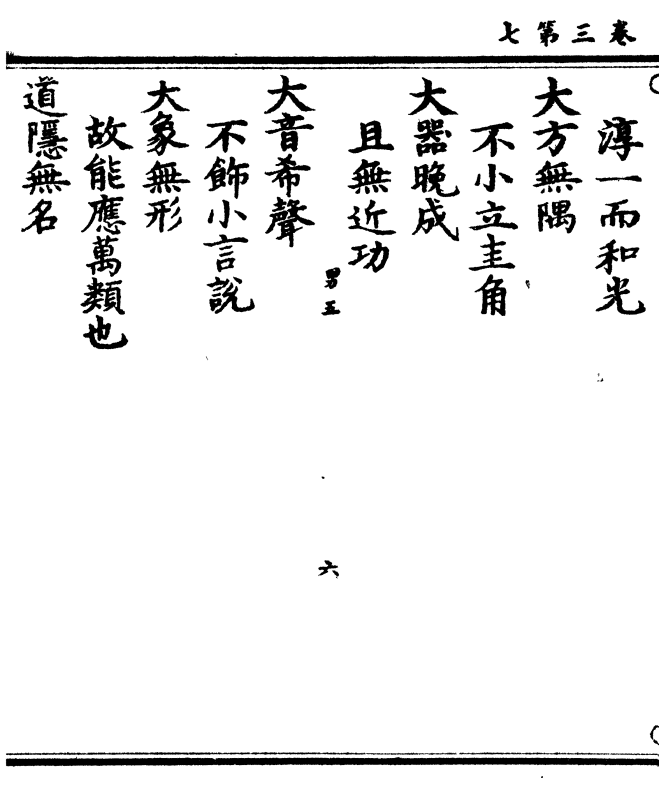 卷三第七
淳一而和光
大方無隅
不小立圭角
大器晚成
且無近功
男五
六
大音希聲
不飾小言說
大象無形
故能應萬類也
道隱無名